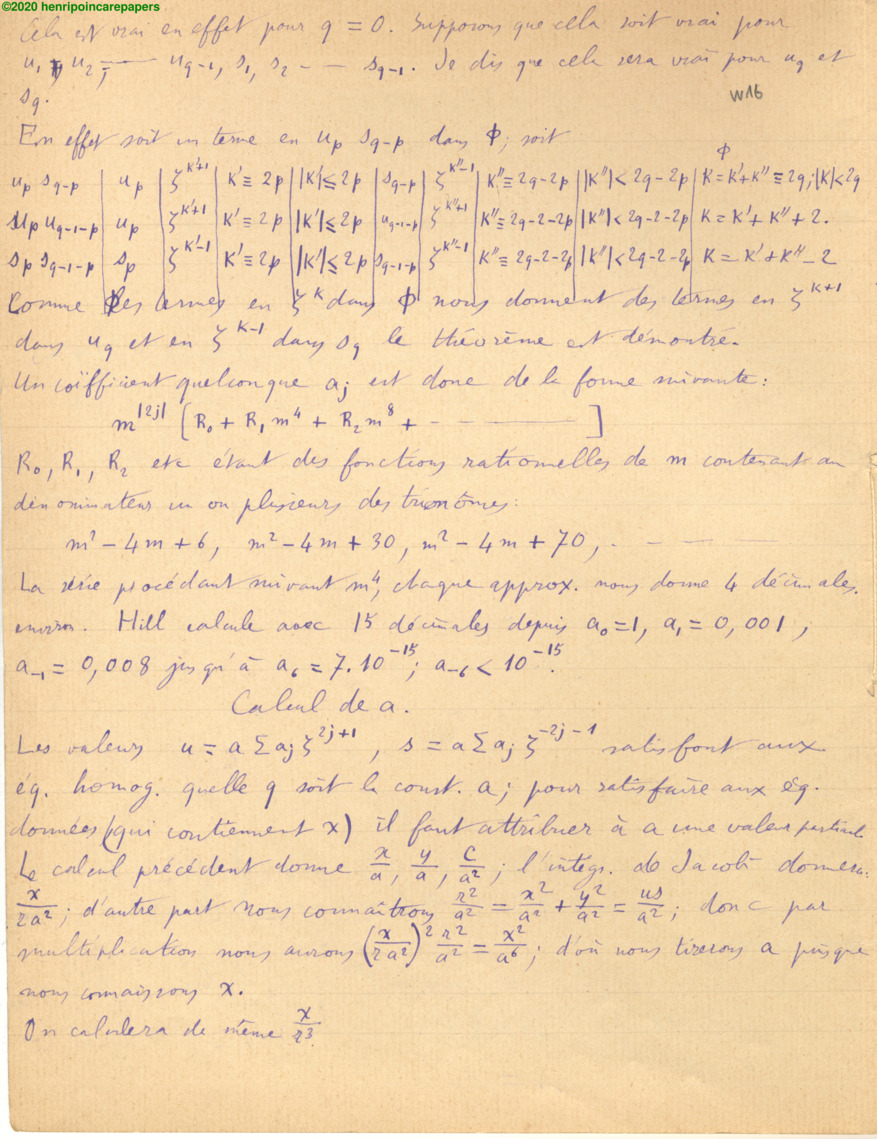 ©2020 henripoincarepapers
Cela est vrai en effet pour q = 0. Supposons que cela soit vrai pour
u₁, u₂, —— u_{q-1}, s₁, s₂ - — s_{q-1}. Je dis que cela sera vrai pour u_q et
s_q.
W16
En effet soit un terme en u_p s_{q-p} dans Φ; soit
Φ
u_p s_{q-p} | u_p | ζ^{K'+1} | K' ≡ 2p | |K'| ≤ 2p | s_{q-p} | ζ^{K''-1} | K'' ≡ 2q-2p | |K''| < 2q-2p | K = K'+K'' ≡ 2q; |K| < 2q
u_p u_{q-1-p} | u_p | ζ^{K'+1} | K' ≡ 2p | |K'| ≤ 2p | u_{q-1-p} | ζ^{K''+1} | K'' ≡ 2q-2-2p | |K''| < 2q-2-2p | K = K' + K'' + 2.
s_p s_{q-1-p} | s_p | ζ^{K'-1} | K' ≡ 2p | |K'| ≤ 2p | s_{q-1-p} | ζ^{K''-1} | K'' ≡ 2q-2-2p | |K''| < 2q-2-2p | K = K' + K'' - 2
Comme les termes en ζ^K dans Φ nous donnent des termes en ζ^{K+1}
dans u_q et en ζ^{K-1} dans s_q le théorème est démontré.
Un coëfficient quelconque a_j est donc de la forme suivante:
m^{|2j|} [R₀ + R₁ m⁴ + R₂ m⁸ + - — — ]
R₀, R₁, R₂ etc étant des fonctions rationnelles de m contenant au
dénominateur un ou plusieurs des trinômes:
m² - 4m + 6, m² - 4m + 30, m² - 4m + 70, - — —
La série procédant suivant m⁴, chaque approx. nous donne 4 décimales.
environ. Hill calcule avec 15 décimales depuis a₀ = 1, a₁ = 0,001,
a₋₁ = 0,008 jusqu'à a₆ = 7.10⁻¹⁵; a₋₆ < 10⁻¹⁵.
Calcul de a.
Les valeurs u = a Σ a_j ζ^{2j+1}, s = a Σ a_j ζ^{-2j-1} satisfont aux
éq. homog. quelle q soit la const. a; pour satisfaire aux éq.
données (qui contiennent x) il faut attribuer à a une valeur particul
Le calcul précédent donne x/a, y/a, C/a²; l'intég. de Jacobi donnera:
x/ra²; d'autre part nous connaîtrons r²/a² = x²/a² + y²/a² = us/a²; donc par
multiplication nous aurons (x/ra²)² r²/a² = x²/a⁶; d'où nous tirerons a puisque
nous connaissons x.
On calculera de même x/r³.